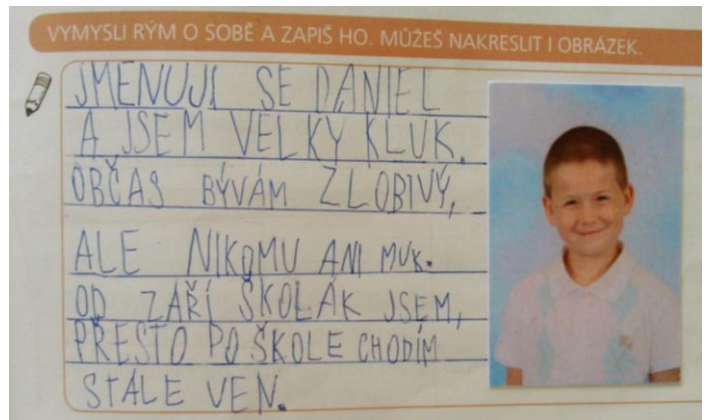 VYMYSLI RÝM O SOBĚ A ZAPIŠ HO. MŮŽEŠ NAKRESLIT I OBRÁZEK.
JMENUJI SE DANIEL
A JSEM VELKÝ KLUK.
OBČAS BÝVÁM ZLOBIVÝ,
ALE NIKOMU ANI MUK.
OD ZÁŘÍ ŠKOLÁK JSEM,
PŘESTO PO ŠKOLE CHODÍM
STÁLE VEN.